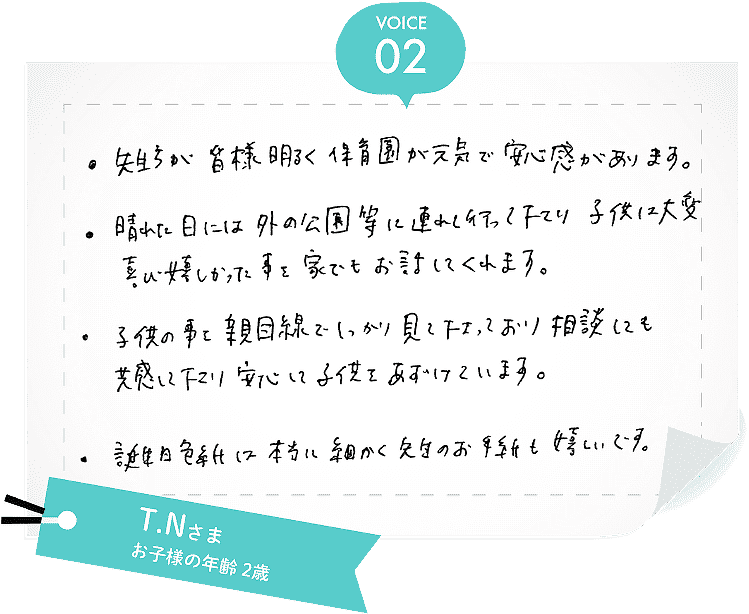 VOICE
02
・先生方が皆様明るく保育園が元気で安心感があります。
・晴れた日には外の公園等に連れて行って下さり子供は大変
喜び嬉しかった事を家でもお話してくれます。
・子供の事を親目線でしっかり見て下さっており相談にも
共感して下さり安心して子供をあずけています。
・誕生日色紙は本当に細かく先生のお手紙も嬉しいです。
T.Nさま
お子様の年齢 2歳